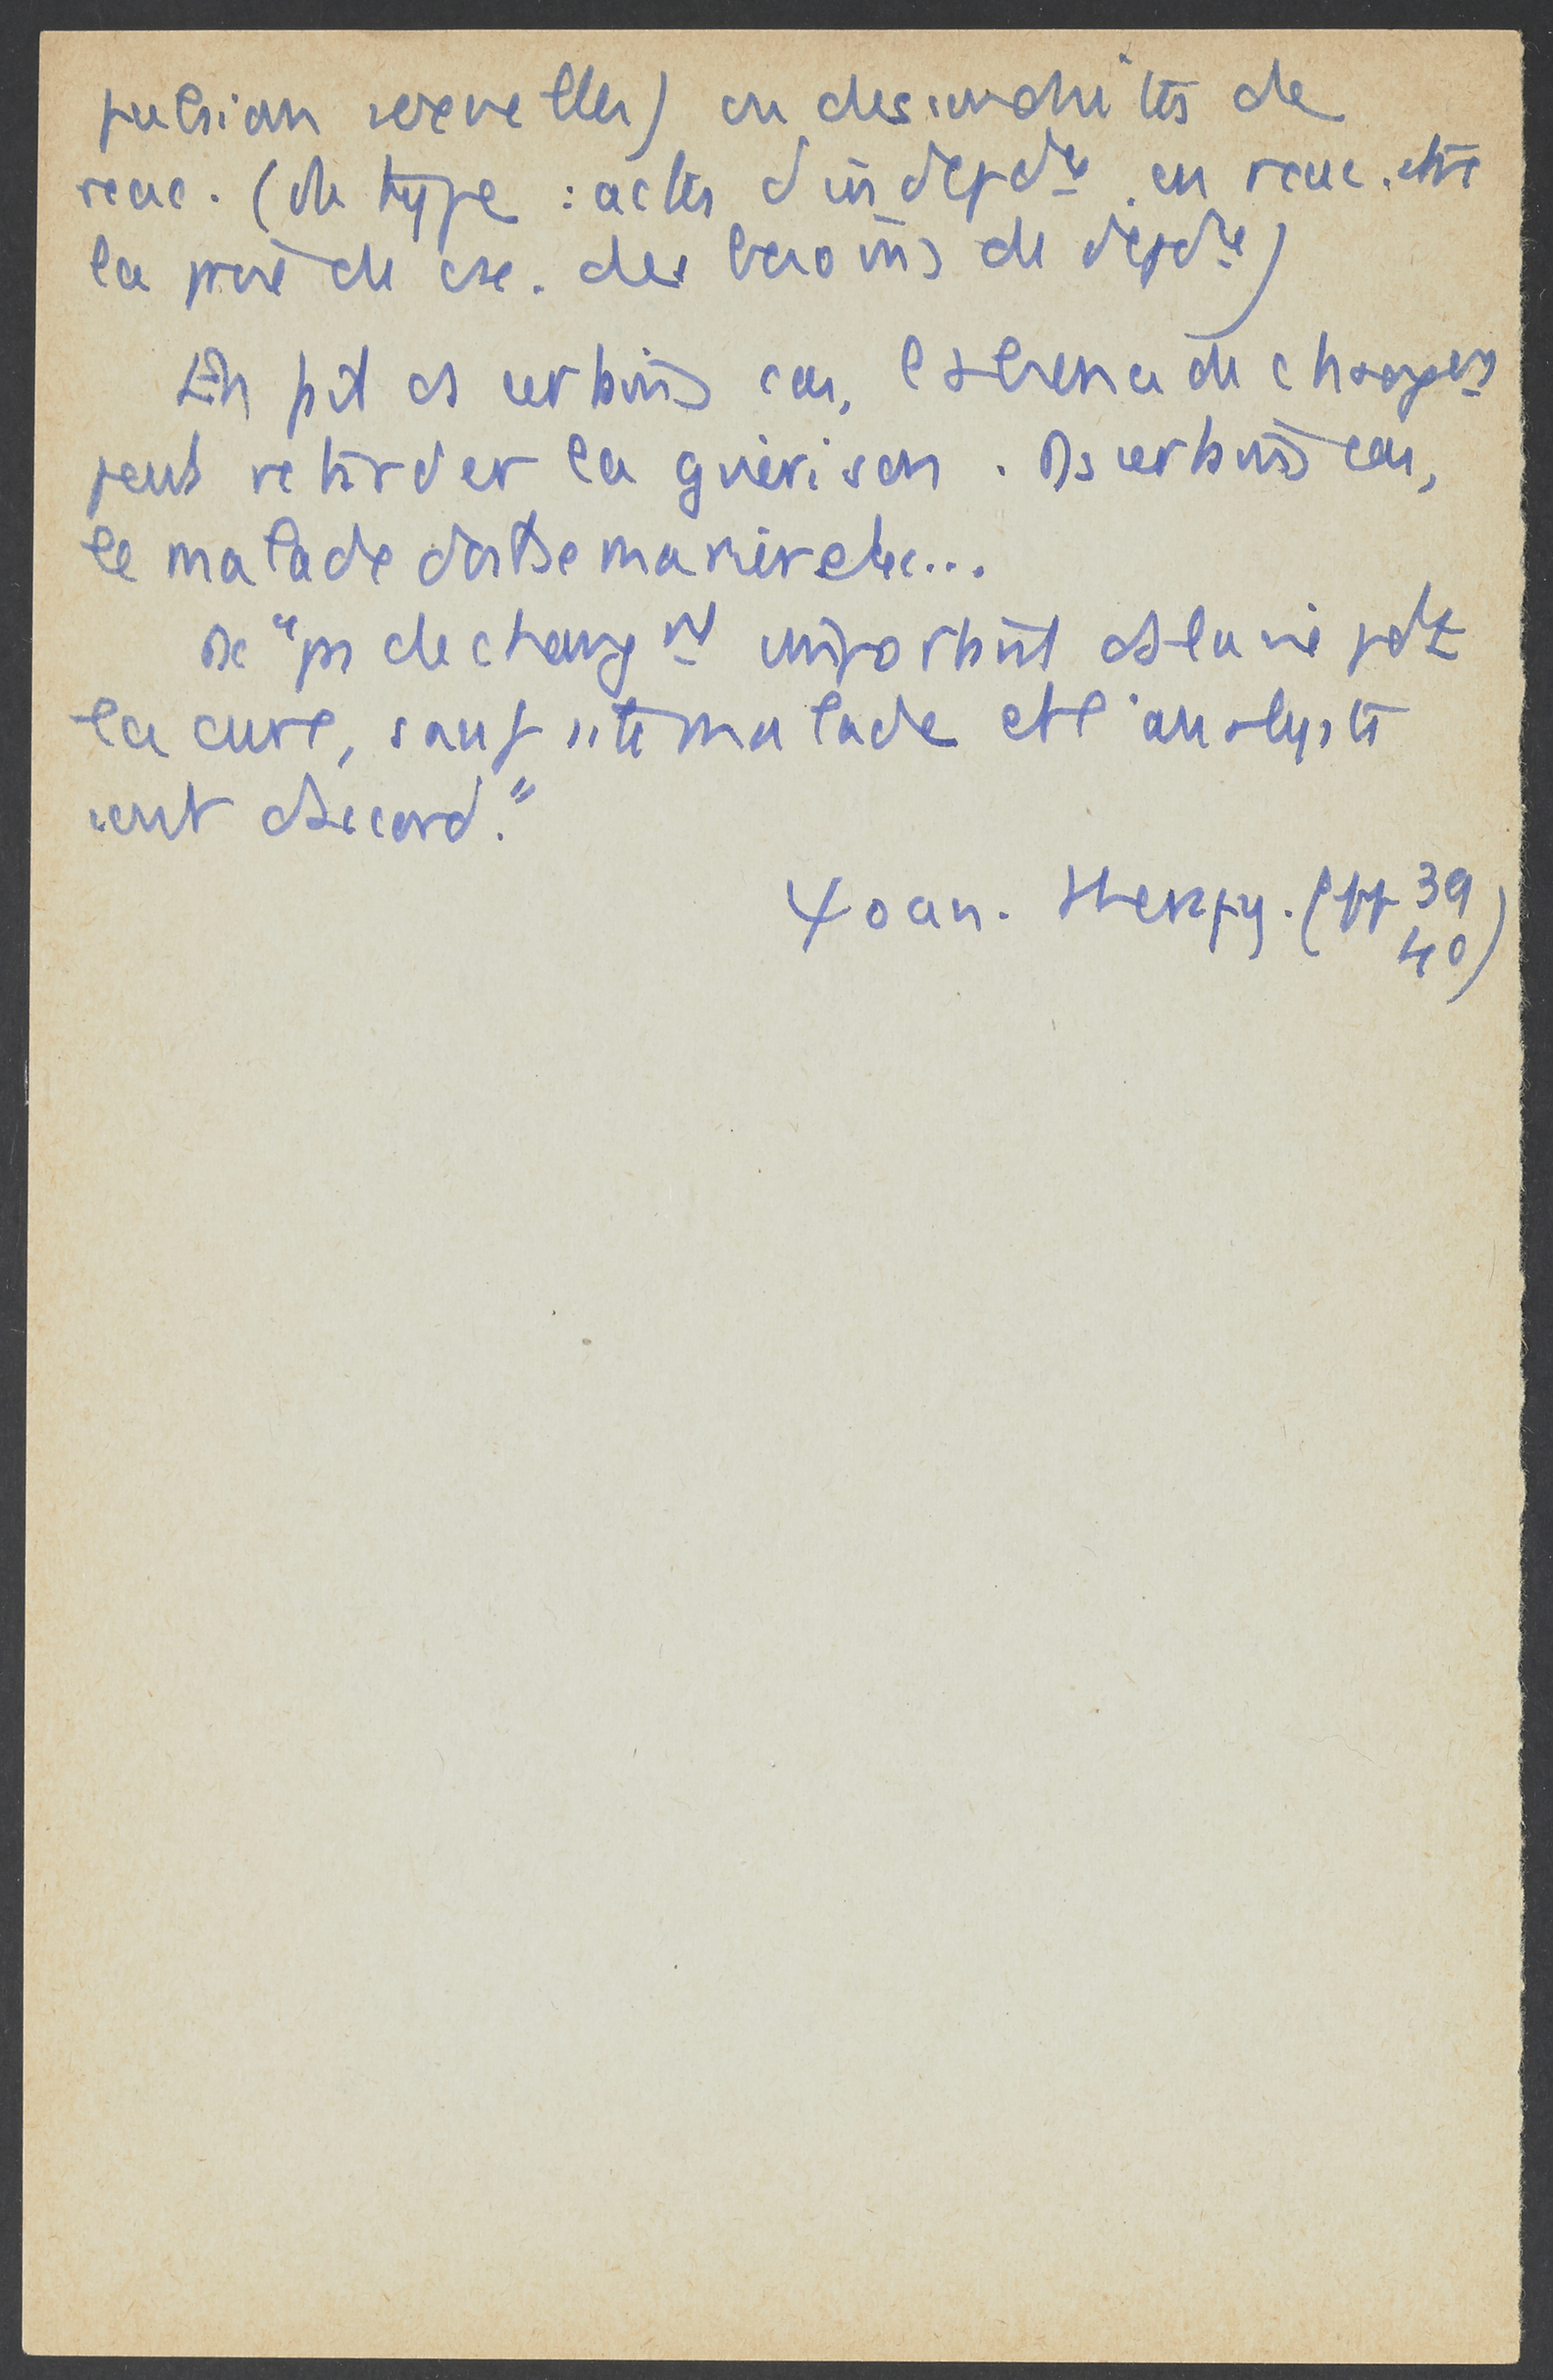 pulsion sexuelles) ou des conduites de
reac. (du type : actes d'indepdce en reac. ctre
la prise de csc. des besoins de depdce)
En fait ds certains cas, l'absence de changets
peut retarder la guérison. Ds certains cas,
le malade doit se marier etc...
Dc "ps de changt important ds la vie pdt
la cure, sauf si le malade et l'analyste
sont d'accord."
Ψoan. therapy. (pp 39
40)